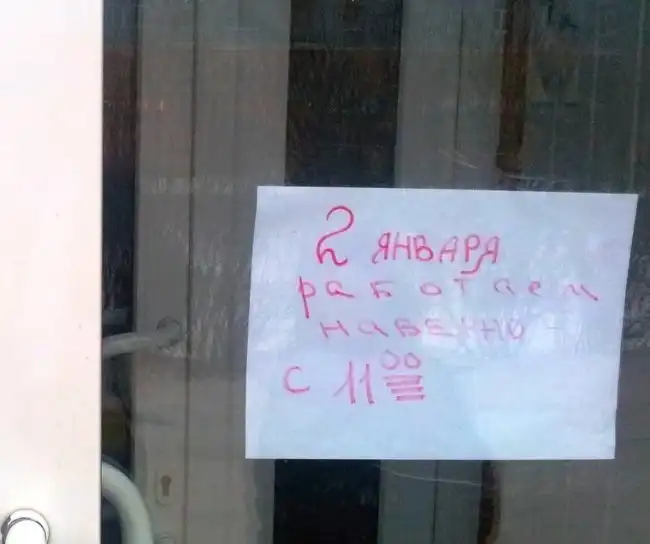 2 ЯНВАРЯ
работаем
наверно -
с 11⁰⁰